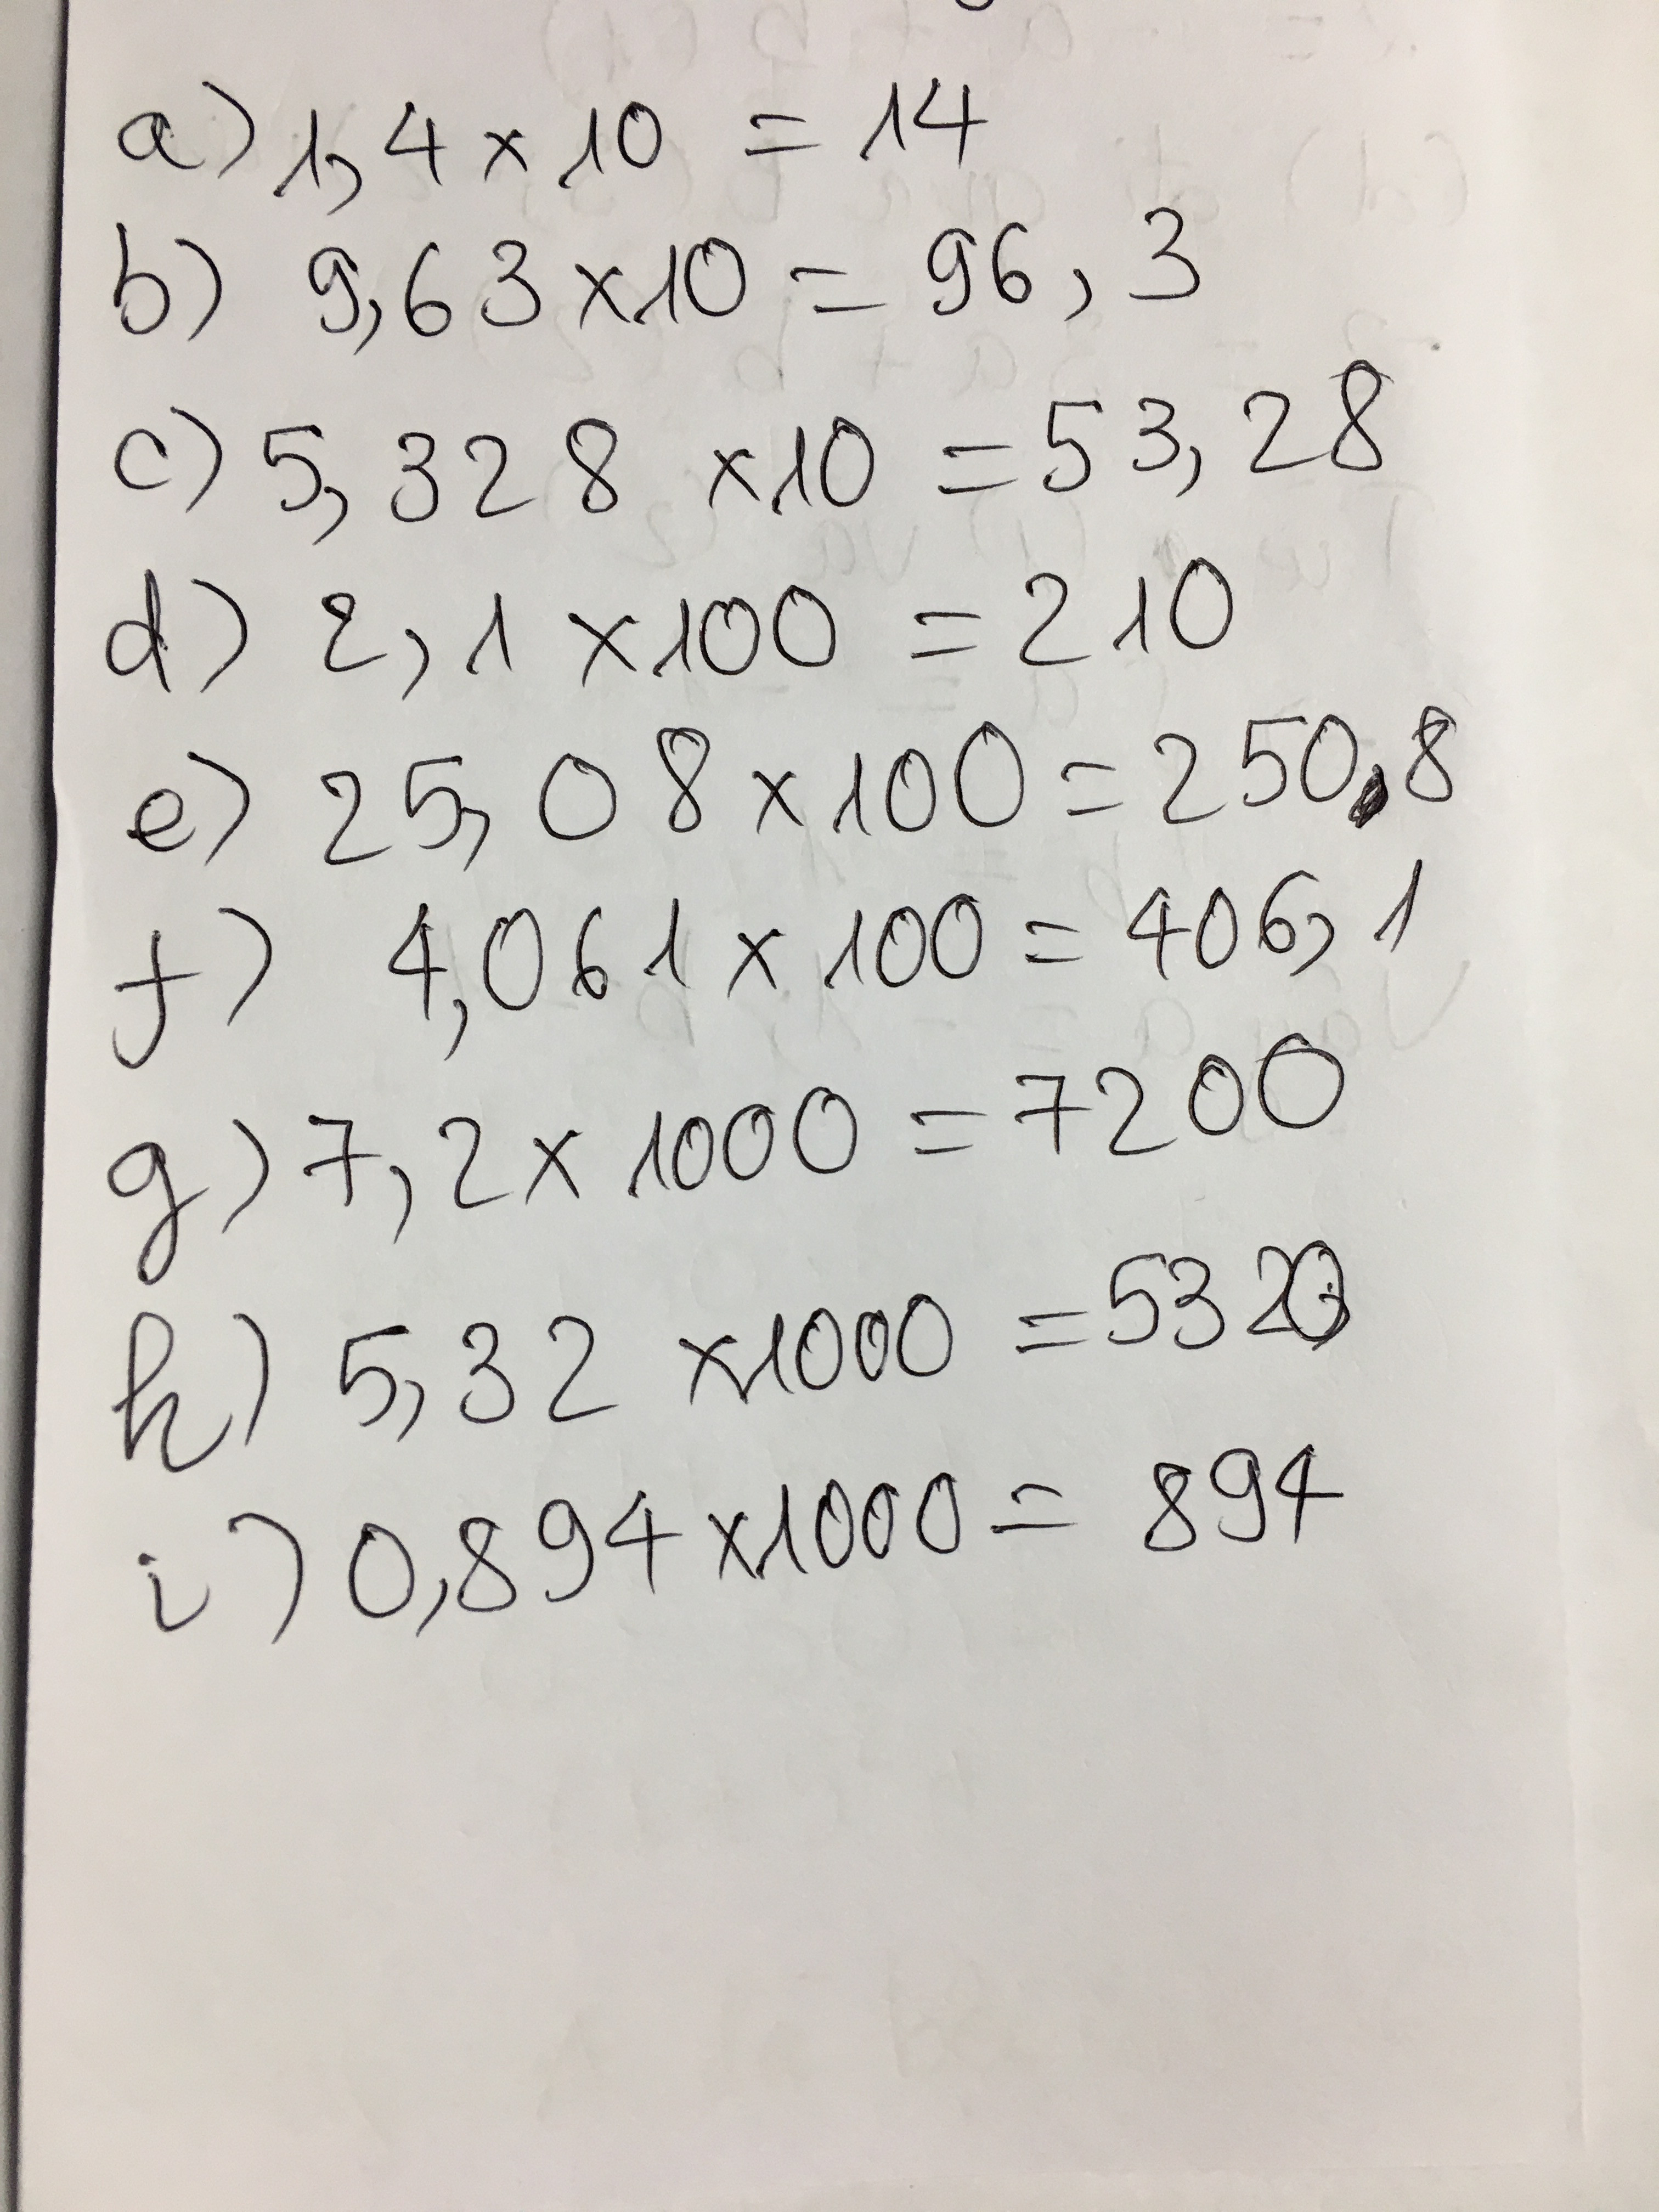 a) 1,4 x 10 = 14
b) 9,63 x 10 = 96,3
c) 5,328 x 10 = 53,28
d) 2,1 x 100 = 210
e) 25,08 x 100 = 2508
f) 4,061 x 100 = 406,1
g) 7,2 x 1000 = 7200
h) 5,32 x 1000 = 5320
i) 0,894 x 1000 = 894